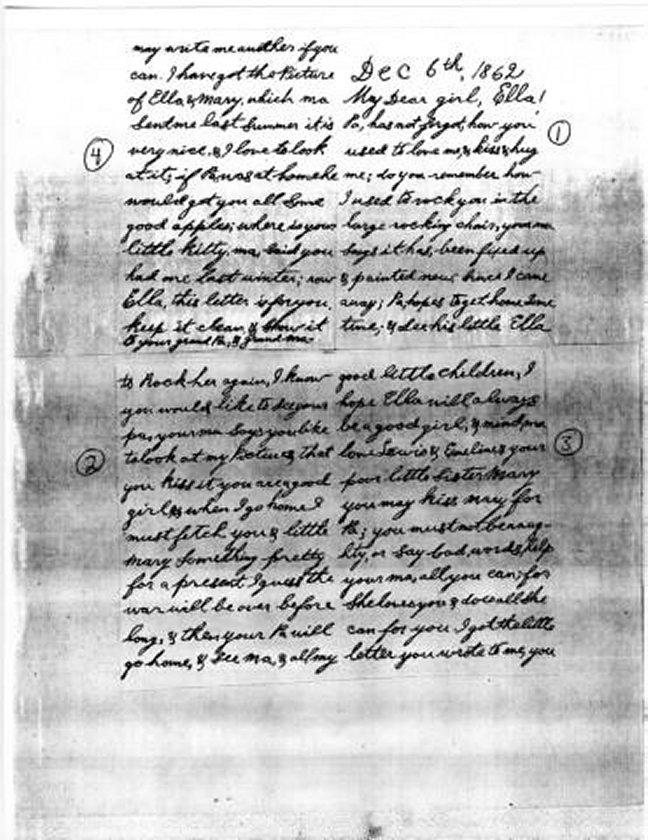 1
Dec 6th, 1862
My Dear girl, Ella!
Pa, has not forgot, how you
used to love me, & kiss & hug
me; do you remember how
I used to rock you in the
large rocking chair, your ma
says it has, been fixed up
& painted new, since I came
away; Pa, hopes to get home some
time; & see his little Ella
2
to Rock her again, I know
you would like to see your
pa, your ma says you like
to look at my Picture, & that
you kiss it you are a good
girl, & when I go home I
must fetch you & little
Mary something pretty
for a present. I guess the
war will be over before
long, & then your Pa will
go home, & see ma, & all my
3
good little children, I
hope Ella will always
be a good girl, & mind ma
love Lewis & Emeline & your
poor little sister Mary
you may kiss mary for
Pa; you must not be naug-
hty, or say bad, words, help
your ma, all you can; for
she loves you & does all she
can for you I got the little
letter you wrote to me, you
4
may write me another if you
can. I have got the Picture
of Ella & Mary, which ma
sent me last summer it is
very nice, & I love to look
at it; if Pa was at home he
would get you all some
good apples; where is your
little Kitty, ma, said you
had one last winter; now
Ella, this letter is for you,
keep it clean, & show it
to your grand Pa, & grand ma